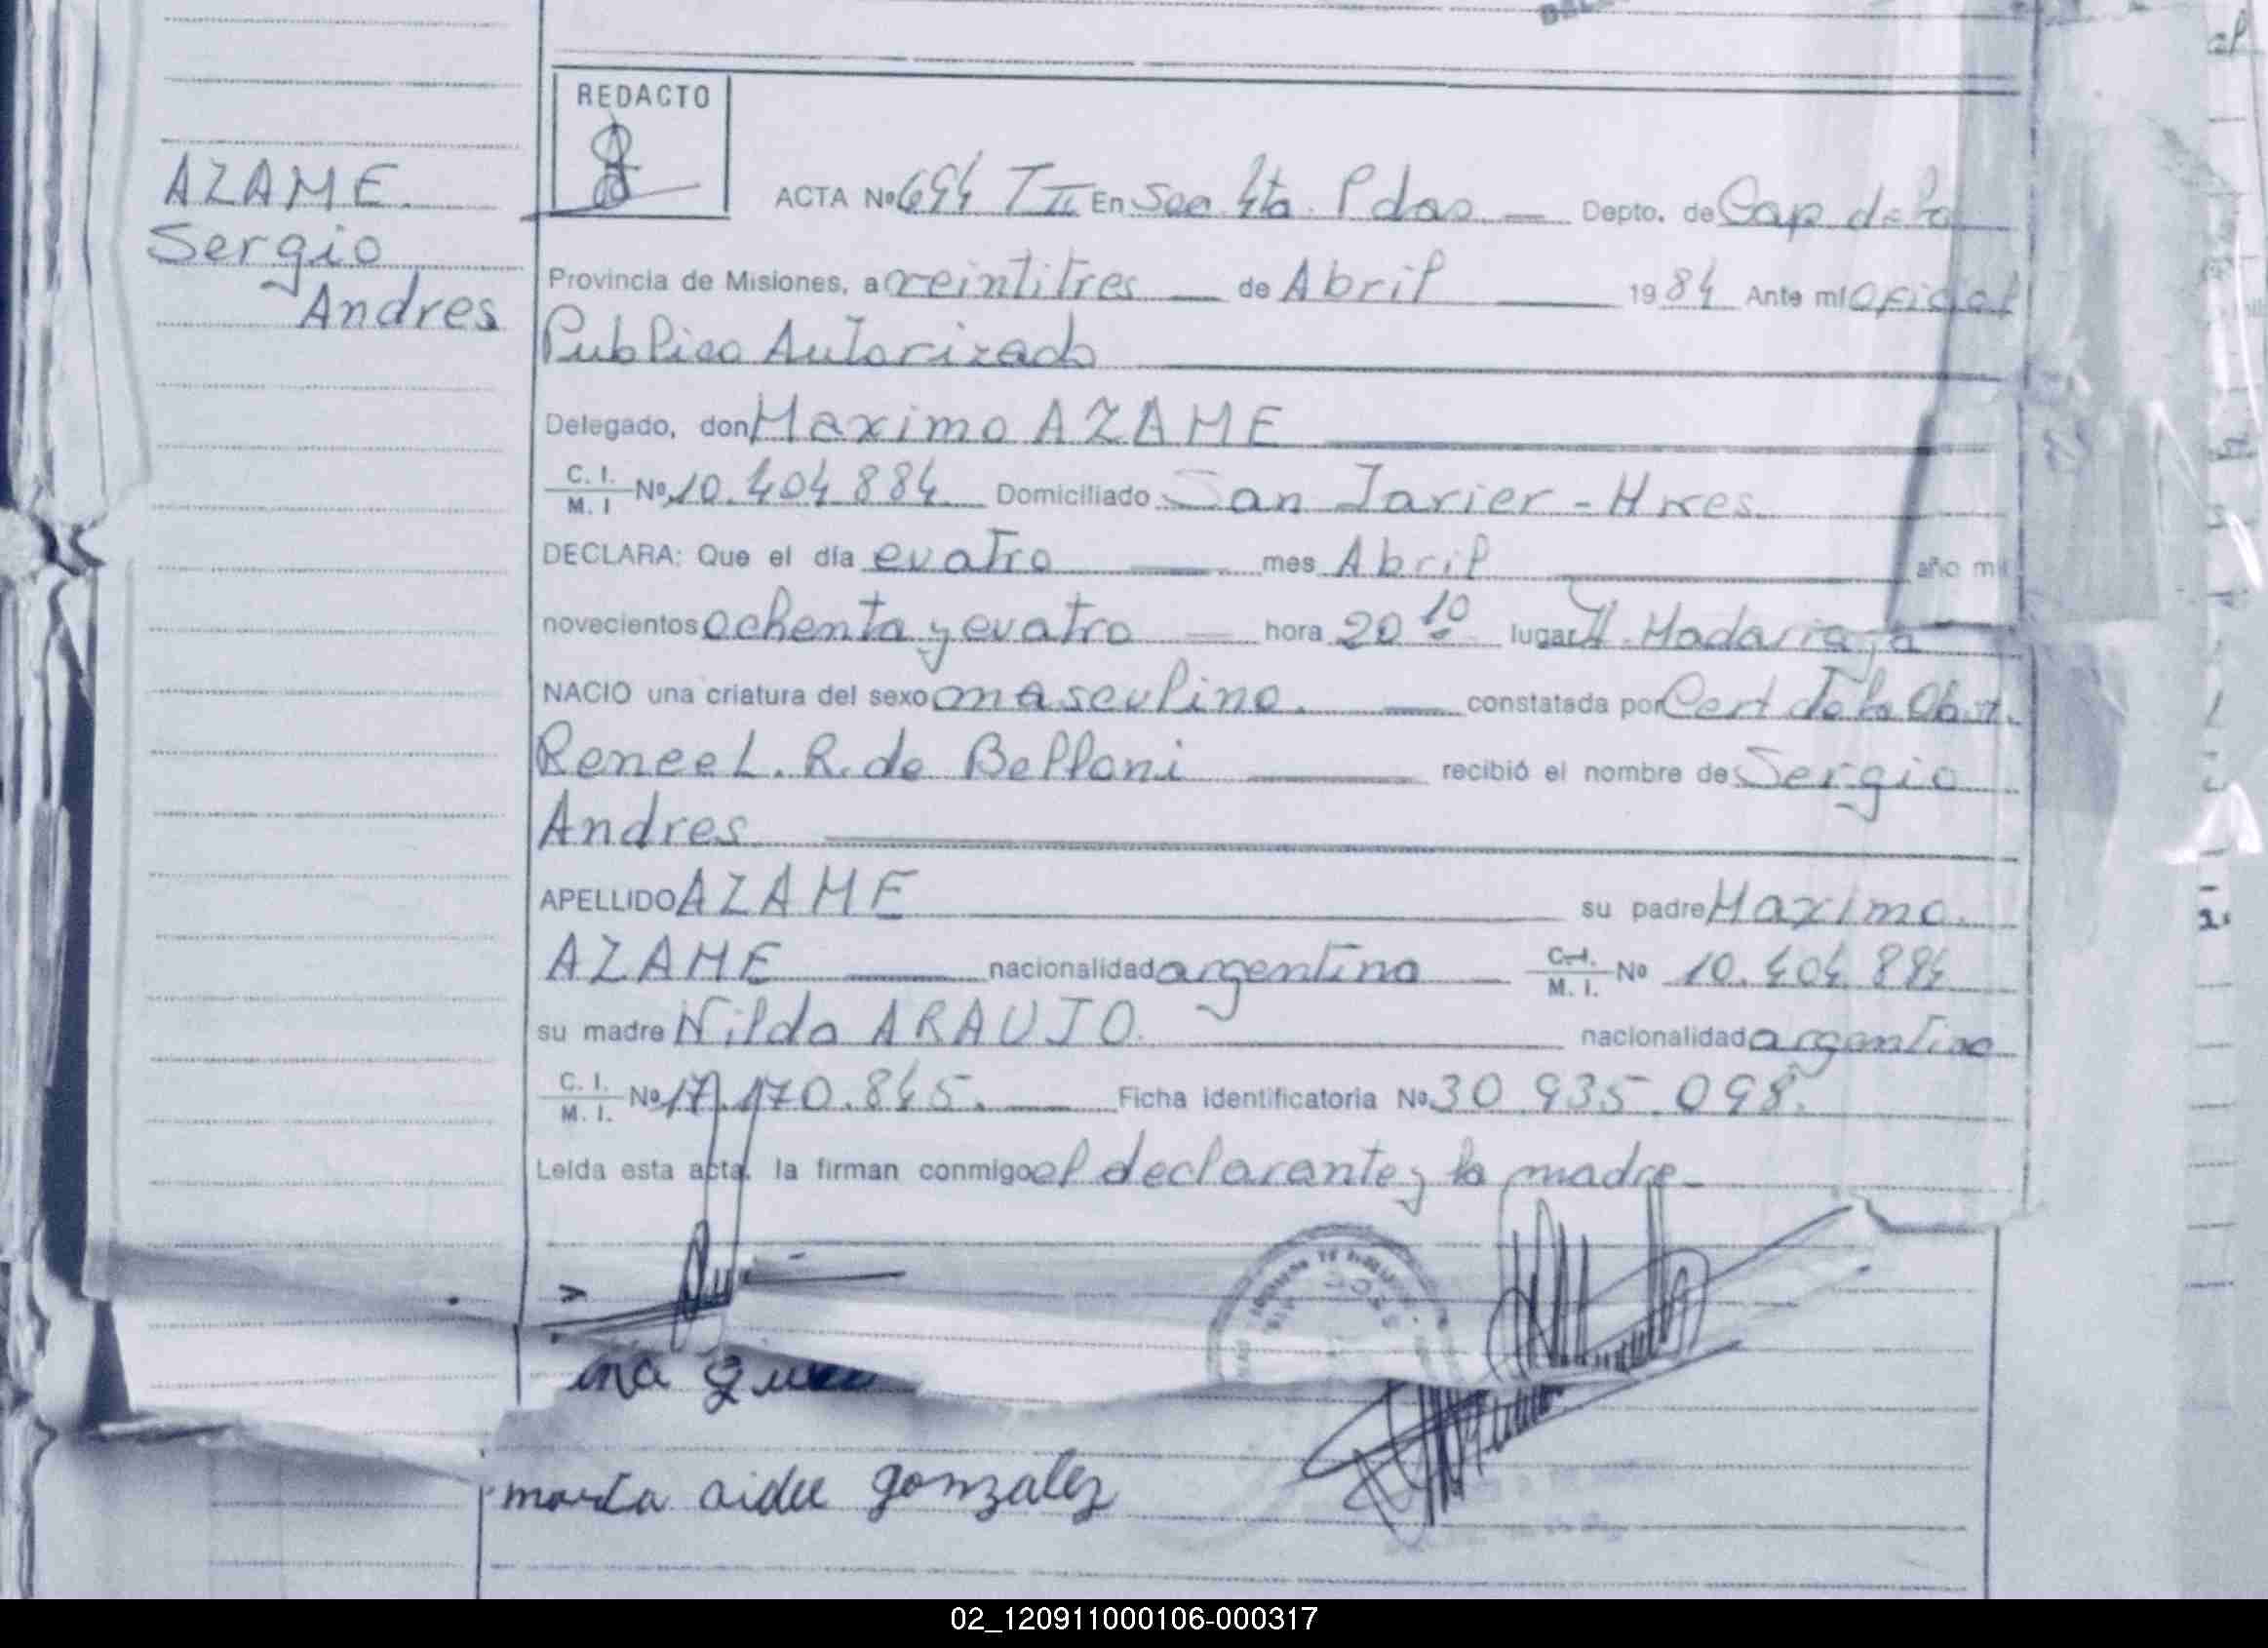 REDACTO
AZAME.
Sergio
Andres
ACTA Nº 694 T II En Sec 4ta. Pdas — Depto. de Cap de la
Provincia de Misiones, a veintitres — de Abril — 1984 Ante mí Oficial
Publico Autorizado
Delegado, don Maximo AZAME
C. I. M. I Nº 10.404.884 Domiciliado San Javier - Mnes.
DECLARA: Que el día cuatro — mes Abril — año mil
novecientos ochenta y cuatro — hora 20 10 lugar H. Madariaga
NACIO una criatura del sexo masculino. — constatada por Cert de la Obst.
Renee L. R. de Belloni — recibió el nombre de Sergio
Andres
APELLIDO AZAME — su padre Maximo.
AZAME — nacionalidad argentino — C.I. M. I. Nº 10.404.884
su madre Nilda ARAUJO. — nacionalidad argentina
C. I. M. I. Nº 17.170.845. — Ficha identificatoria Nº 30.935.098.
Leída esta acta, la firman conmigo el declarante y la madre.-
marta aidee gonzalez
02_120911000106-000317